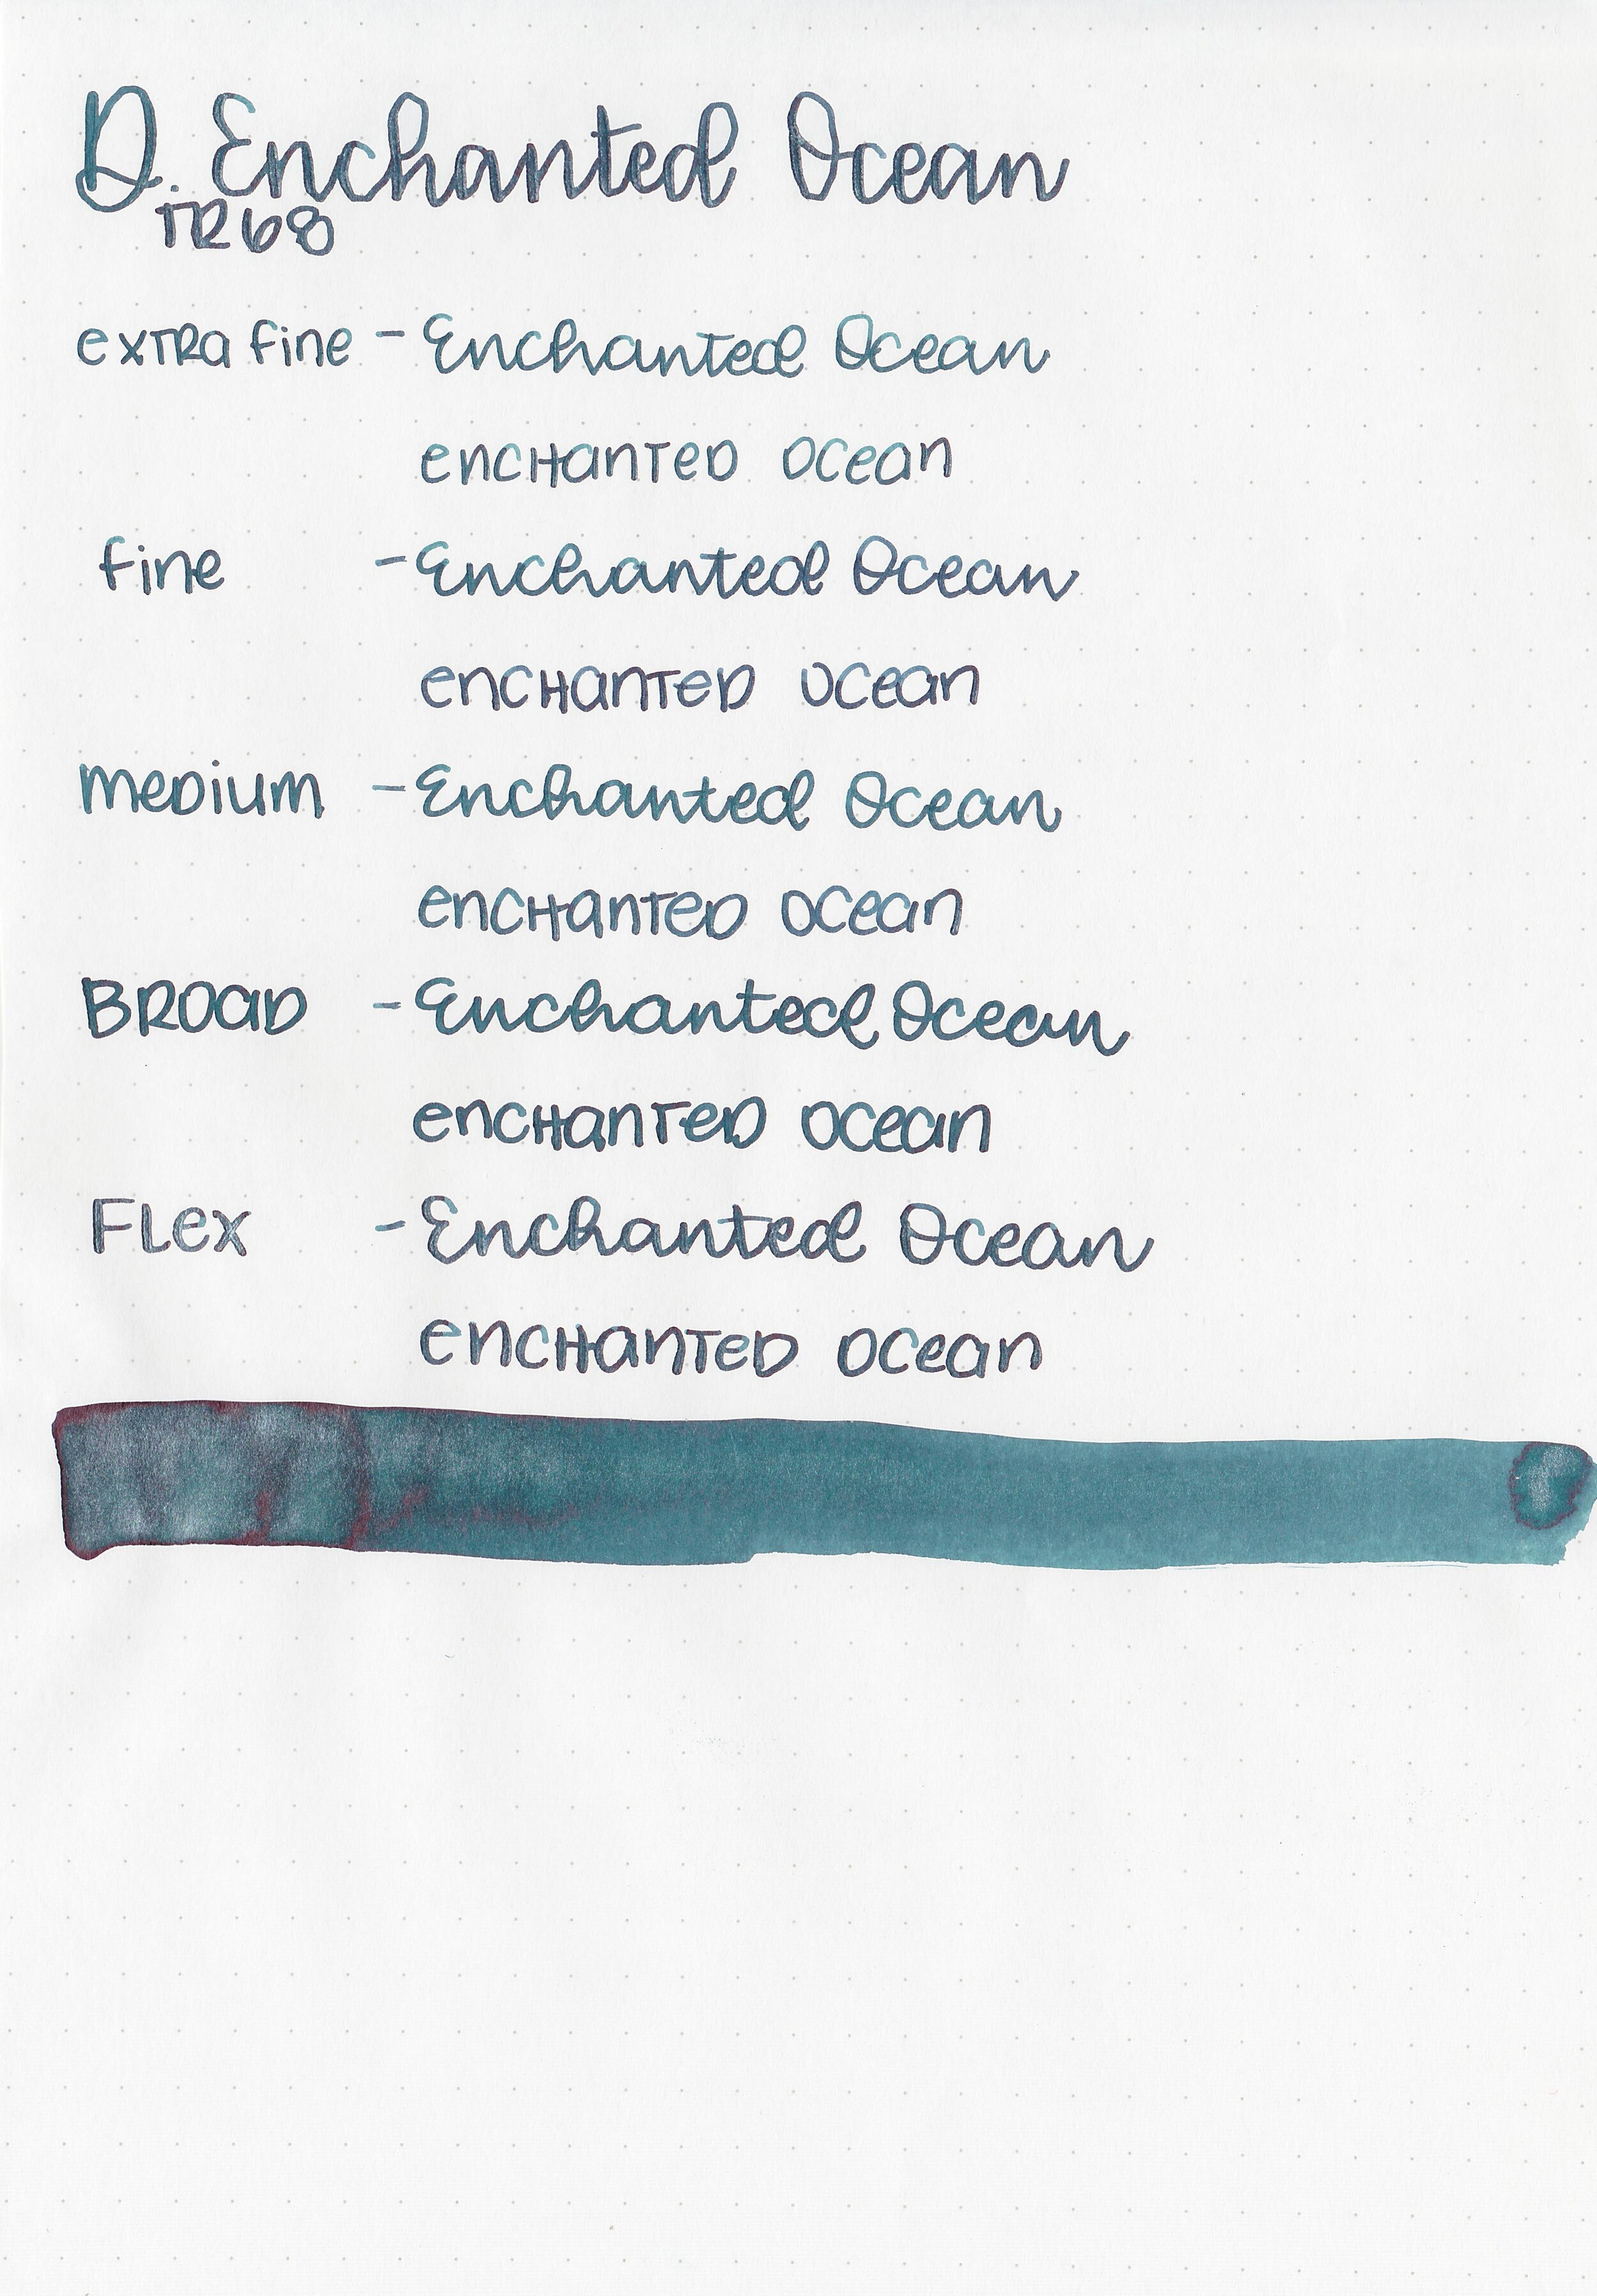 D. Enchanted Ocean
TR68
extra fine - Enchanted Ocean
enchanted ocean
fine - Enchanted Ocean
enchanted ocean
medium - Enchanted Ocean
enchanted ocean
Broad - Enchanted Ocean
enchanted ocean
Flex - Enchanted Ocean
enchanted ocean